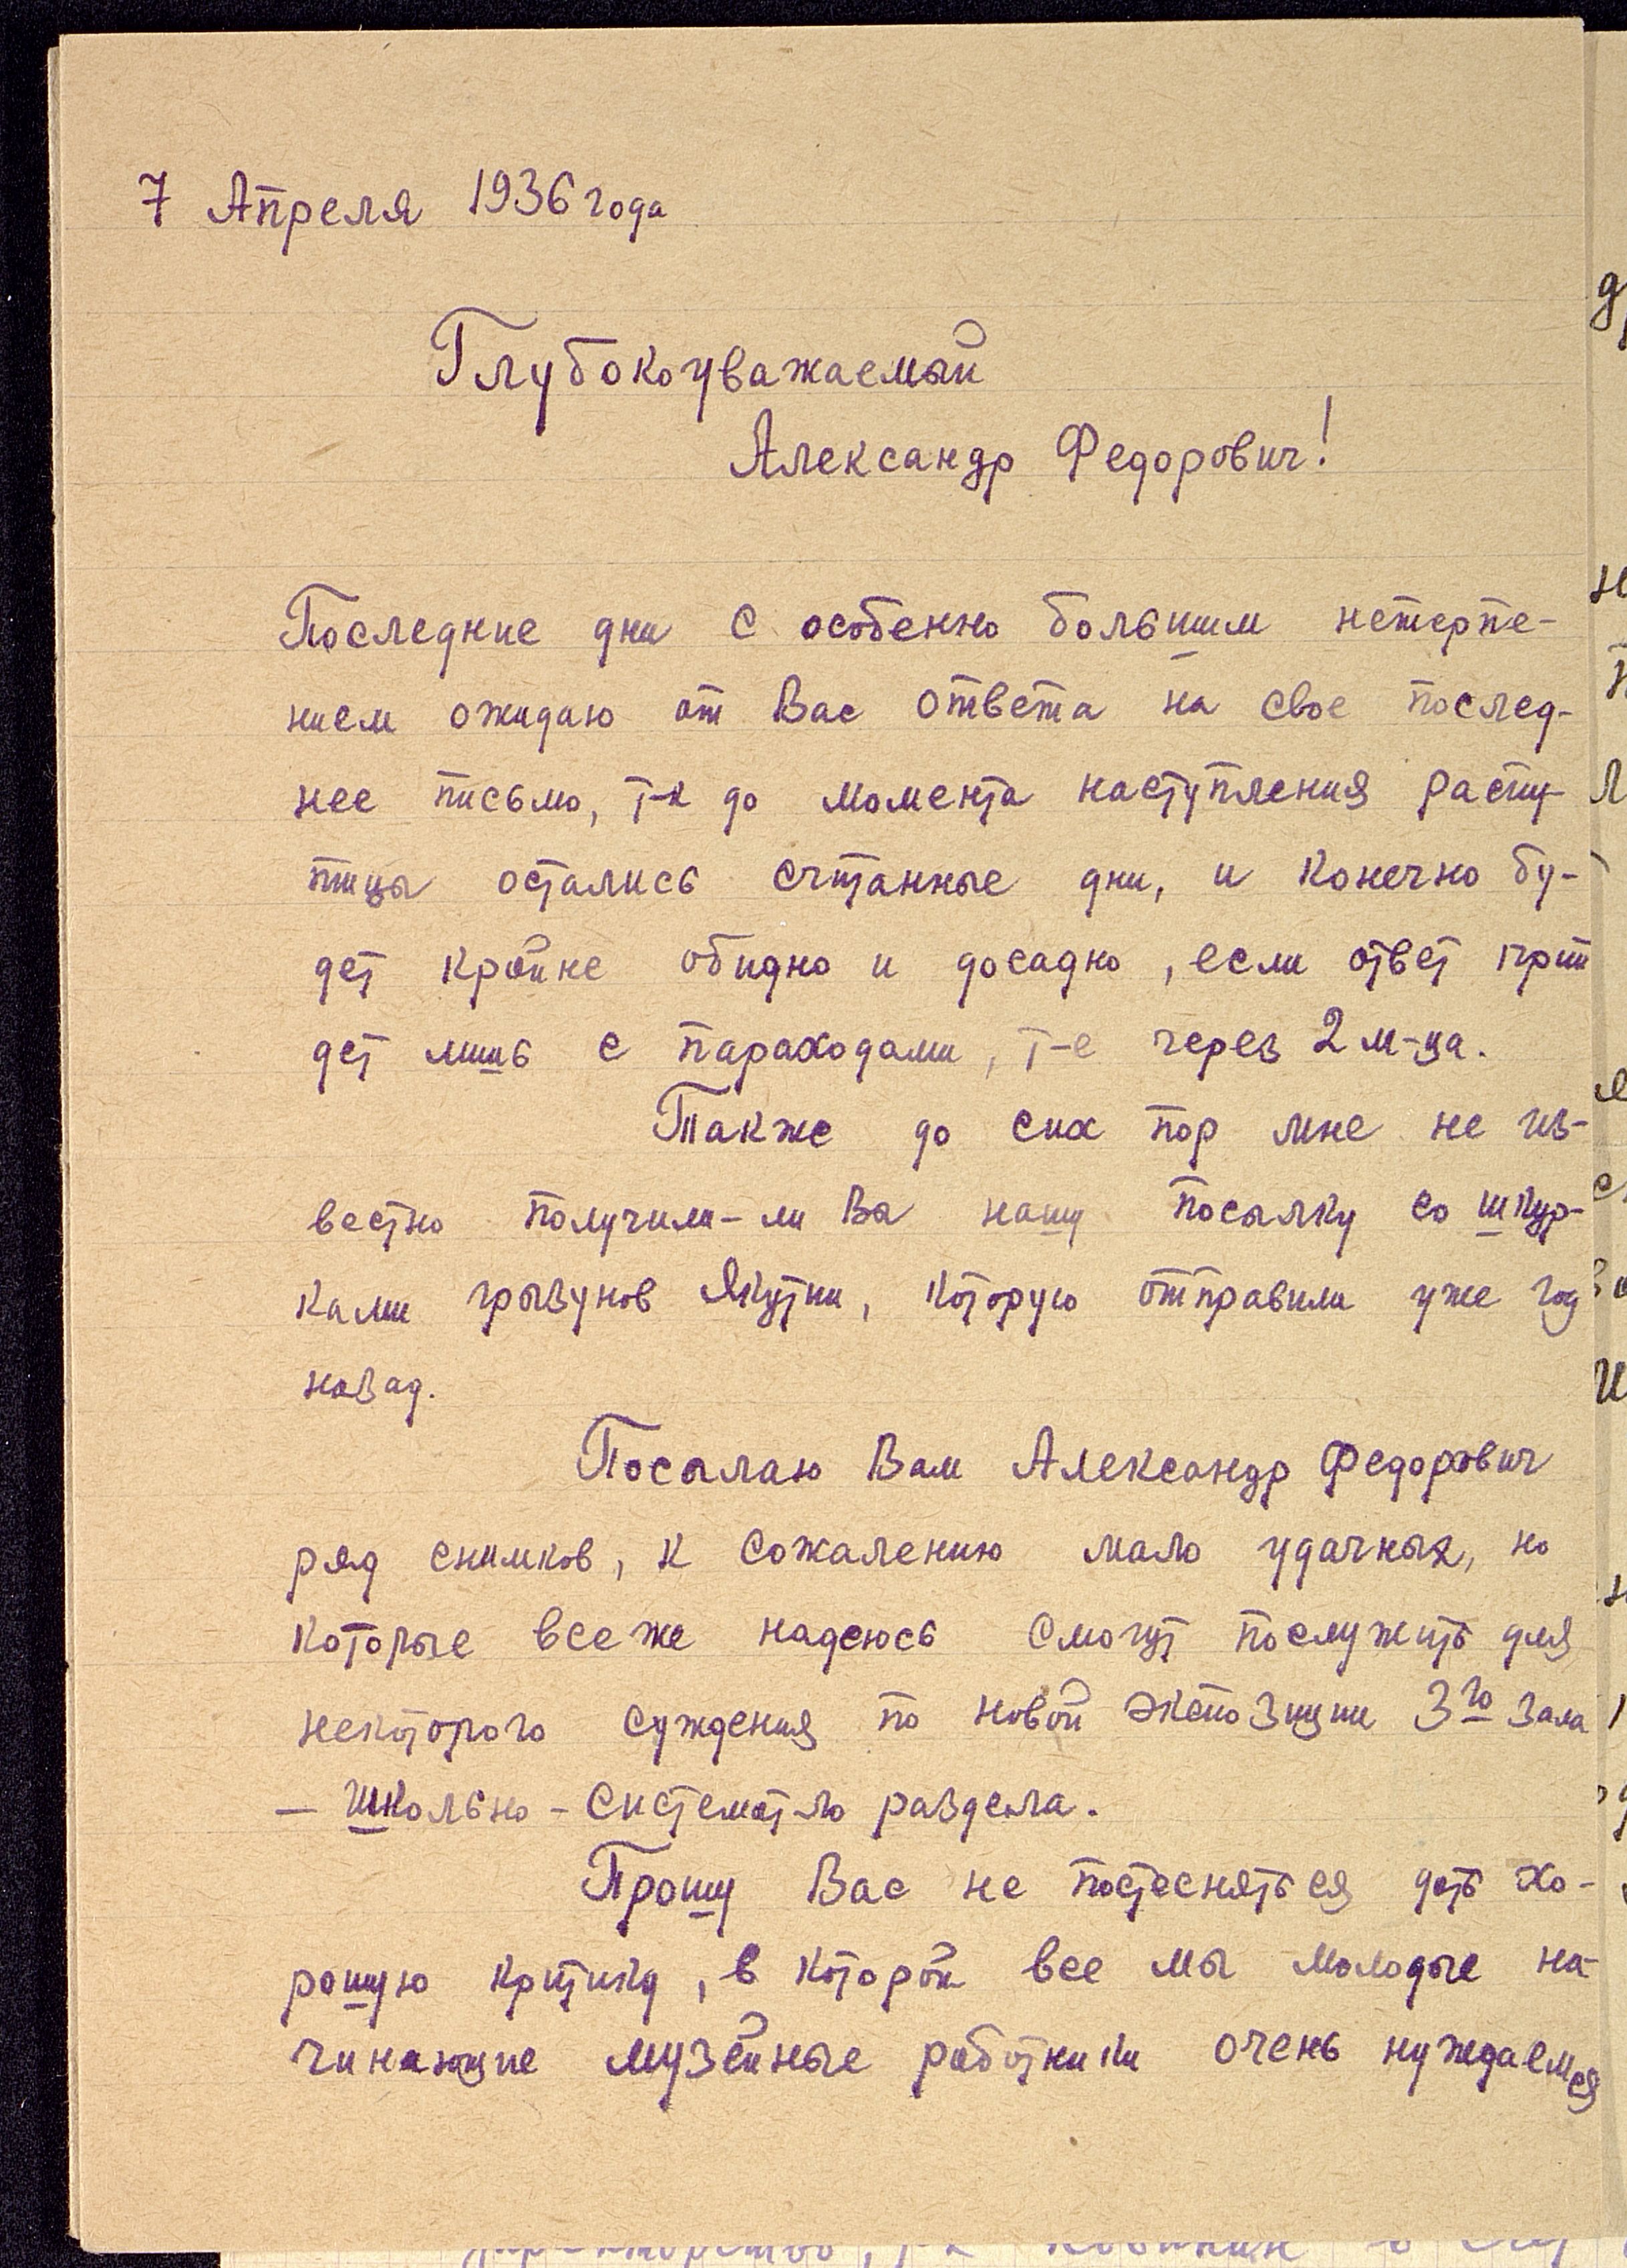 7 Апреля 1936 года
Глубокоуважаемый
Александр Федорович!
Последние дни с особенно большим нетерпе-
нием ожидаю от Вас ответа на свое послед-
нее письмо, т-к до момента наступления распу-
тицы остались считанные дни, и конечно бу-
дет крайне обидно и досадно, если ответ прий
дет лишь с параходами, т-е через 2 м-ца.
Также до сих пор мне не из-
вестно получили-ли Вы нашу посылку со шкур-
ками грызунов Якутии, которую отправили уже год
назад.
Посылаю Вам Александр Федорович
ряд снимков, к сожалению мало удачных, но
которые все же надеюсь смогут послужить для
некоторого суждения по новой экспозиции 3го зала
– Школьно-системат-го раздела.
Прошу Вас не постесняться дать хо-
рошую критику, в которой все мы молодые на-
чинающие музейные работники очень нуждаемся